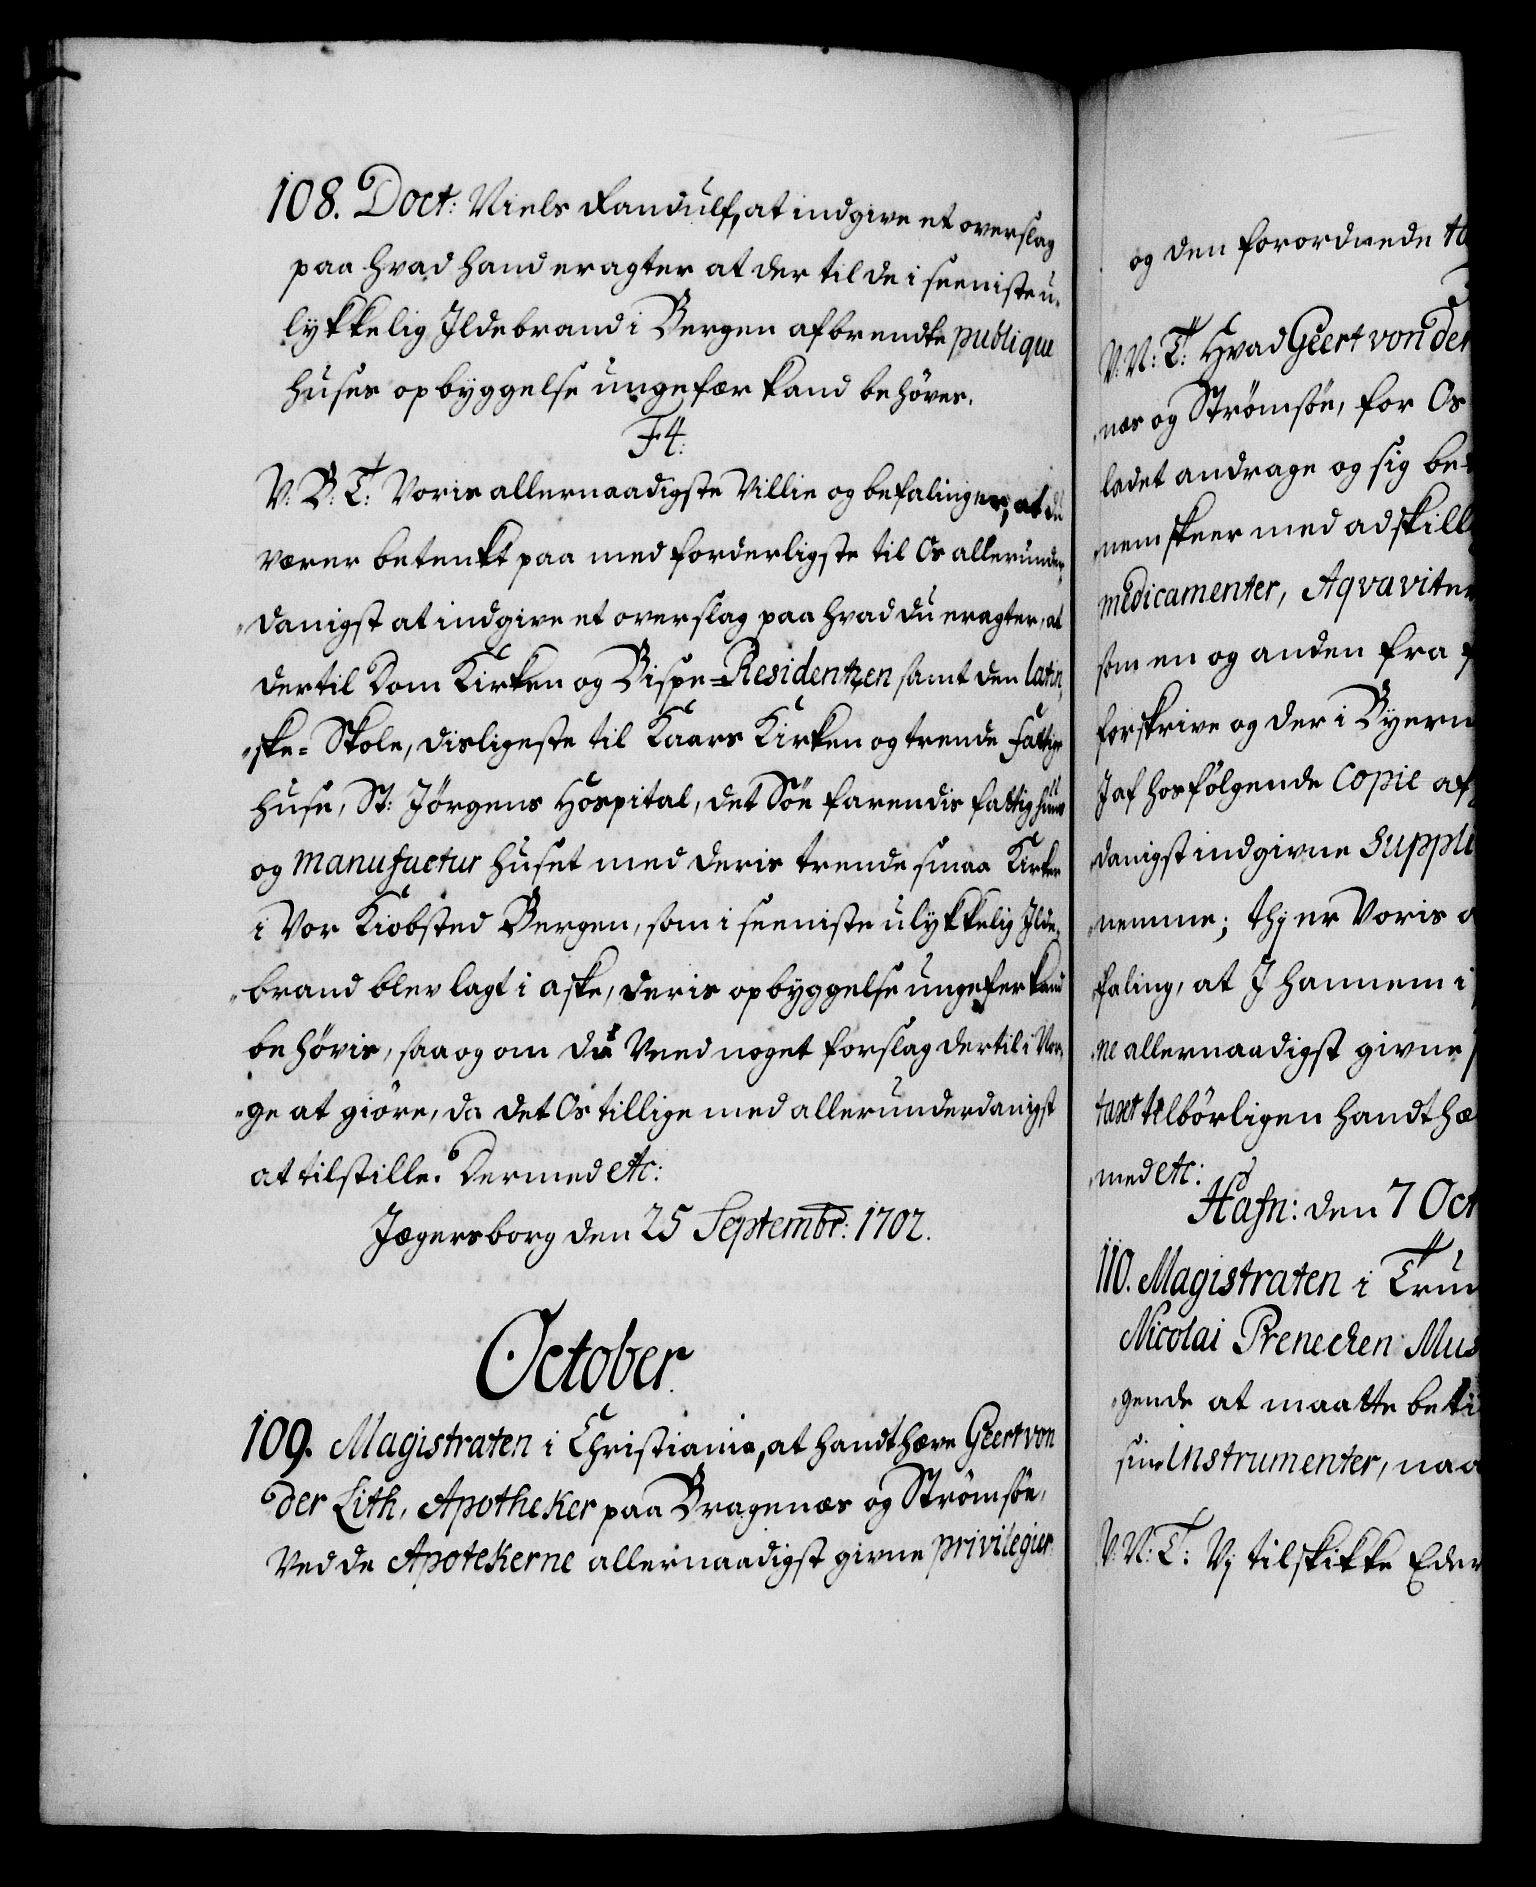 108. Doct: Niels Randulf, at indgive et overslag
paa hvad hand eragter at der til de i seeniste u-
lykkelig Ildebrand i Bergen afbrendte publique
huses opbyggelse ungefær kand behøves.
F4.
V. B: T: Voris allernaadigste Villie og befaling er, at du
værer betenkt paa med forderligste til Os allerunder-
danigst at indgive et overslag paa hvad du eragter, at
dertil Dom Kirken og Bispe-Residentzen samt den latin-
ske-Skole, disligeste til Kaars Kirken og trende Fattige
huse, St: Jörgens Hospital, det Söe farendis fattighuus
og Manufactur huset med deris trende smaa Kirker
i Vor Kiöbsted Bergen, som i seeniste ulykkelig Ilde-
brand blev lagt i aske, deris opbyggelse ungefer kand
behövis, saa og om du Veed noget forslag dertil i Nor-
ge at giöre, da det Os tillige med allerunderdanigst
at tilstille. Dermed etc:
Jægersborg den 25 Septembr: 1702.
October.
109. Magistraten i Christiania, at handthæve Geert von
der Lith, Apotheker paa Bragenæs og Strømsøe,
Ved de Apotekerne allernaadigst givne privilegier
og den forordnede ta
V: N: T: Hvad Geert von der
næs og Strømsøe, for Os
ladet andrage og sig be-
nem skeer med adskill
medicamenter, Aqvaviter
som en og anden fra f
forskrive og der i Byern
I af hosfölgende Copie af
danigst indgivne Suppli
nemme; thj er Voris a
faling, at I hannem i
ne allernaadigst givne
taxt tilbörligen handthæ
med etc:
Hafn: den 7 Oct
110. Magistraten i Trun
Nicolai Prenechen Mus
gende at maatte beti
sine Instrumenter, naa
V: N: T: Vj tilskikke Eder